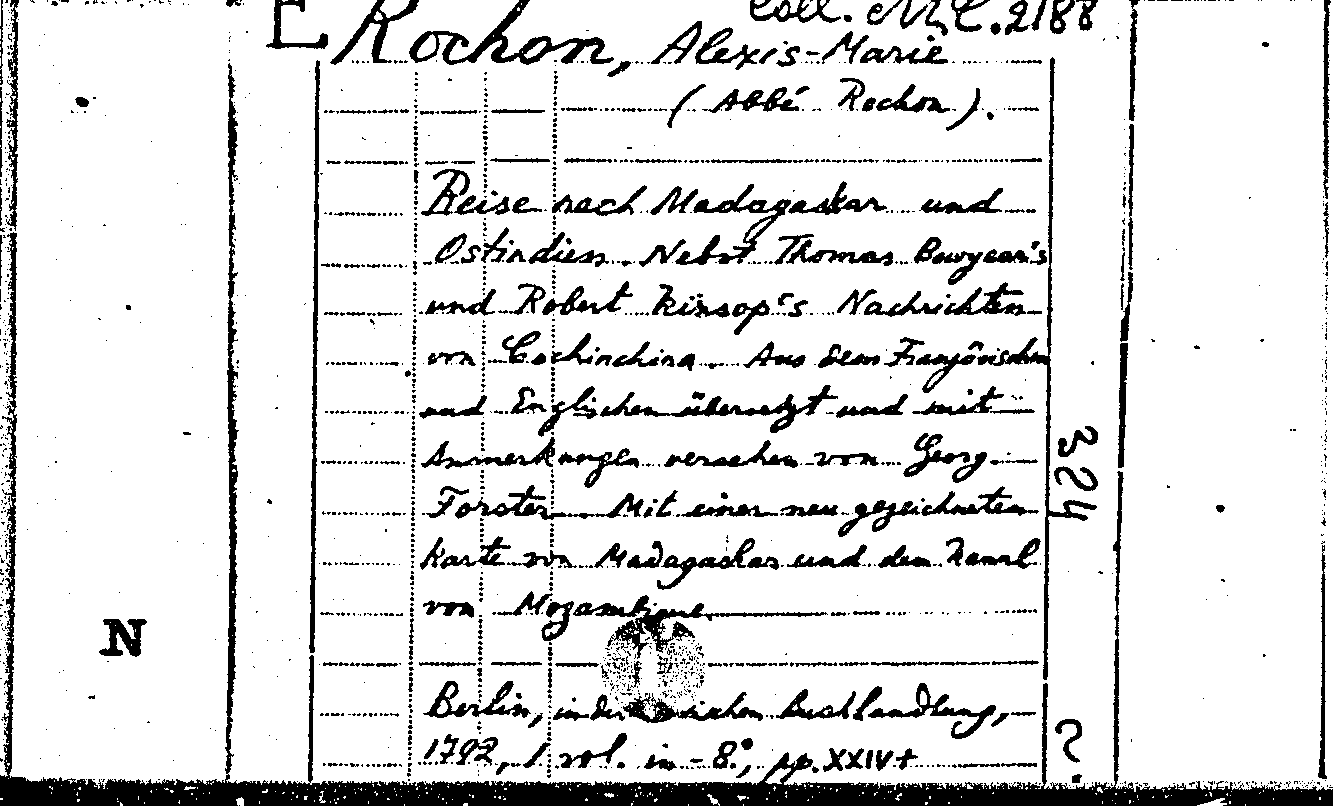 Coll. M.C. 2188
E Rochon, Alexis-Marie
(Abbé Rochon).
Reise nach Madagaskar und
Ostindien. Nebst Thomas Bowyear's
und Robert Kirsop's Nachrichten
von Cochinchina. Aus dem Französischen
und Englischen übersetzt und mit
Anmerkungen versehen von Georg
Forster. Mit einer neu gezeichneten
Karte von Madagaskar und dem Kanal
von Mozambique.
324
N
Berlin, in der
Buchhandlung,
1792, 1 vol. in-8°, pp. XXIV+
?